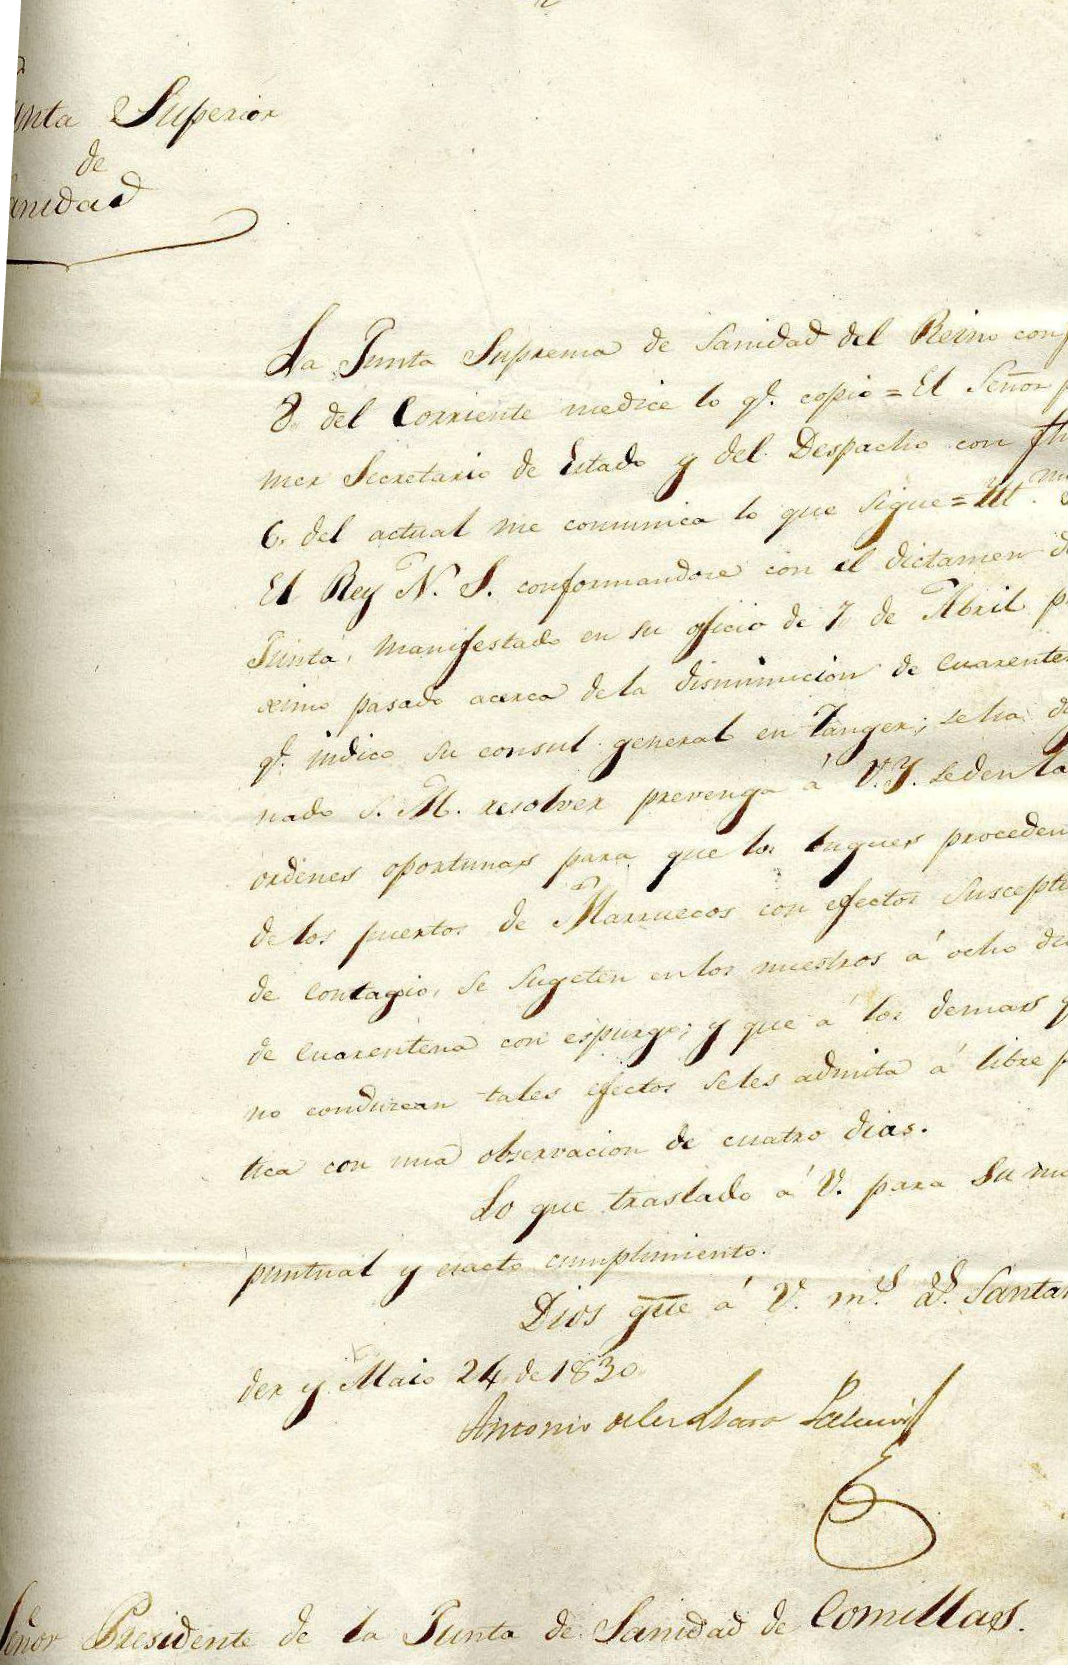 unta Superior
de
anidad
La Junta Suprema de Sanidad del Reino con
8 del Corriente medice lo qe. copio = El Señor p
mer Secretario de Estado y del Despacho con fh
6. del actual me comunica lo que sigue = Ill.mo
El Rey N. S. conformandose con el dictamen de
Junta, manifestado en su oficio de 7 de Abril p
ximo pasado acerca dela disminucion de cuarenten
qe. indico su consul general en Tanger; seha dig
nado S. M. resolver prevenga á V. Y. seden la
ordenes oportunas para que los buques proceden
delos puertos de Marruecos con efectos suscepti
de contagio, se sugeten enlos nuestros á ocho di
de cuarentena con espurgo; y que á los demas q
no conduzcan tales efectos seles admita á libre p
tica con una observacion de cuatro dias.
Lo que traslado á V. para su ma
puntual y esacto cumplimiento.
Dios gue á V. ms. as. Santan
der y Maio 24 de 1830
Antonio
Señor Presidente de la Junta de Sanidad de Comillas.